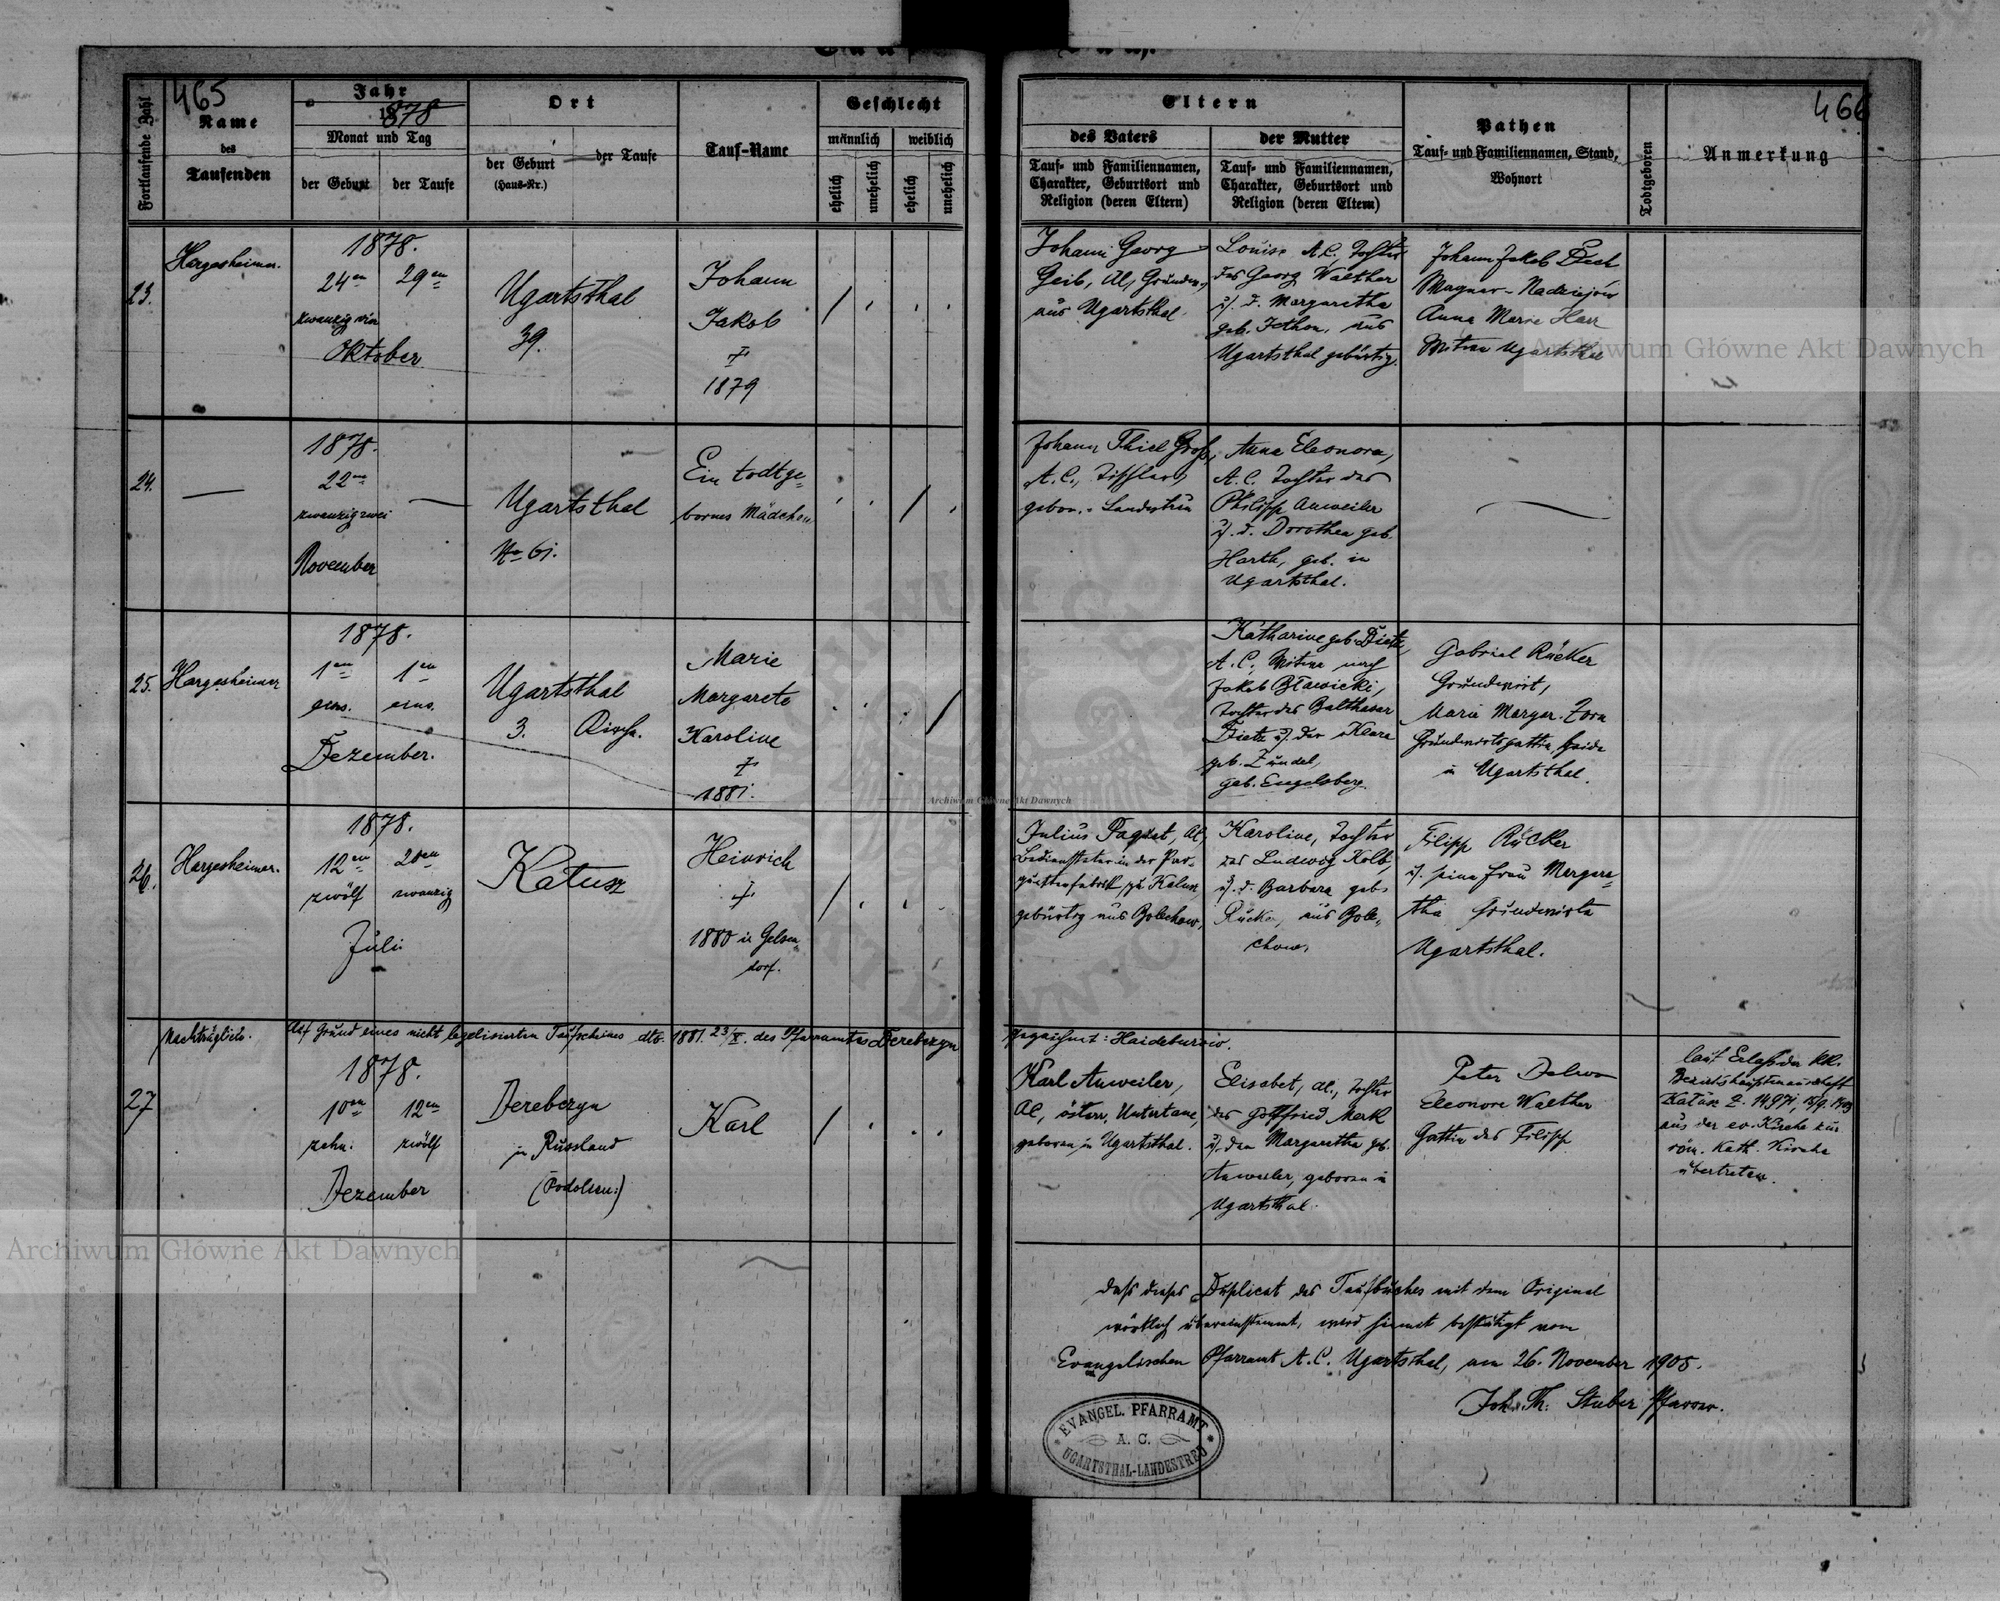 465
Jahr
1878
Ort
Geschlecht
Fortlaufende Zahl
Name
des
Taufenden
Monat und Tag
der Geburt
der Taufe
der Geburt
(Haus-Nr.)
der Taufe
Tauf-Name
männlich
weiblich
ehelich
unehelich
ehelich
unehelich
23.
Hargesheimer.
1878.
24en 29en
zwanzig vier
Oktober
Ugartsthal
39.
Johann
Jakob
†
1879
24.
1878.
22en
zwanzig zwei
November
Ugartsthal
No 61.
Ein todtge=
bornes Mädchen
25.
Hargesheimer
1878.
1en 1en
eins. eins.
Dezember.
Ugartsthal
3. Kirche.
Marie
Margarete
Karoline
†
1881.
26.
Hargesheimer.
1878.
12en 20en
zwölf zwanzig
Juli
Kałusz
Heinrich
†
1880 in Gelsen=
dorf.
Nachträglich. Auf Grund eines nicht legalisierten Taufscheines dto. 1881. 23/X. des Pfarramtes Dereberyn
27
1878.
10en 12en
zehn. zwölf
Dezember
Dereberyn
in Russland
(Podolien:)
Karl
466
Eltern
des Vaters
der Mutter
Tauf- und Familiennamen,
Charakter, Geburtsort und
Religion (deren Eltern)
Tauf- und Familiennamen,
Charakter, Geburtsort und
Religion (deren Eltern)
Pathen
Tauf- und Familiennamen, Stand,
Wohnort
Todtgeboren
Anmerkung
Johann Georg
Geib, AC,
aus Ugartsthal.
Louise A.C., Tochter
des Georg Walther
u. d. Margaretha
geb. Jothen, aus
Ugartsthal gebürtig.
Johann Jakob
Wagner - Nadziejów
Anna Marie Harr
Witwe Ugartsthal
Johann Thiel Groß,
A.C., Tischler,
gebor. - Landestreu
Anna Eleonora,
A.C. Tochter des
Philipp Anweiler
u. d. Dorothea geb.
Harth, geb. in
Ugartsthal.
Katharine geb. Dietz
A.C., Witwe nach
Jakob Bławicki,
Tochter des Balthasar
Dietz u. der Klara
geb. Zündel,
geb. Engelsberg.
Gabriel Rücker
Grundwirt,
Marie Margar. Zorn
Grundwirtsgattin, beide
in Ugartsthal.
Julius Paquet, AC,
Bediensteter in der Par=
quettenfabrik zu Kalusz
gebürtig aus Bolechow,
Karoline, Tochter
des Ludwig Kolb,
u. d. Barbara geb.
Rücker, aus Bole=
chow,
Filipp Rücker
u. seine Frau Margare=
tha Grundwirte
Ugartsthal.
gezeichnet: Haideburow.
Karl Anweiler,
AC, österr. Untertane,
geboren in Ugartsthal.
Elisabet, AC., Tochter
des Gottfried Merk
u. der Margaretha geb.
Anweiler, geboren in
Ugartsthal.
Peter
Eleonore Walther
Gattin des Filipp
laut Erlaß der kk.
Bezirkshauptmannschaft
Kałusz Z. 14971,
aus der ev. Kirche zur
röm. kath. Kirche
übertreten.
daß dieses Duplicat des Taufbuches mit dem Original
wörtlich übereinstimmt, wird hiemit bestätigt vom
Evangelischen Pfarramt A.C. Ugartsthal, am 26. November 1905.
Joh. Th. Stuber Pfarrer.
EVANGEL. PFARRAMT
A. C.
UGARTSTHAL-LANDESTREU
Archiwum Główne Akt Dawnych
Archiwum Główne Akt Dawnych
Archiwum Główne Akt Dawnych